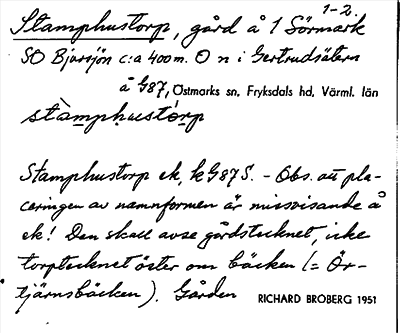 1-2.
Stamphustorp, gård å 1 Sörmark
SO Bjursjön c:a 400 m. O n i Gertrudsätern
å G87, Östmarks sn, Fryksdals hd, Värml. län
stàmphustórp
Stamphustorp ek, k G87 S. - Obs. att pla-
ceringen av namnformen är missvisande å
ek! Den skall avse gårdstecknet, icke
torptecknet öster om bäcken (= Ör-
tjärnsbäcken). Gården RICHARD BROBERG 1951